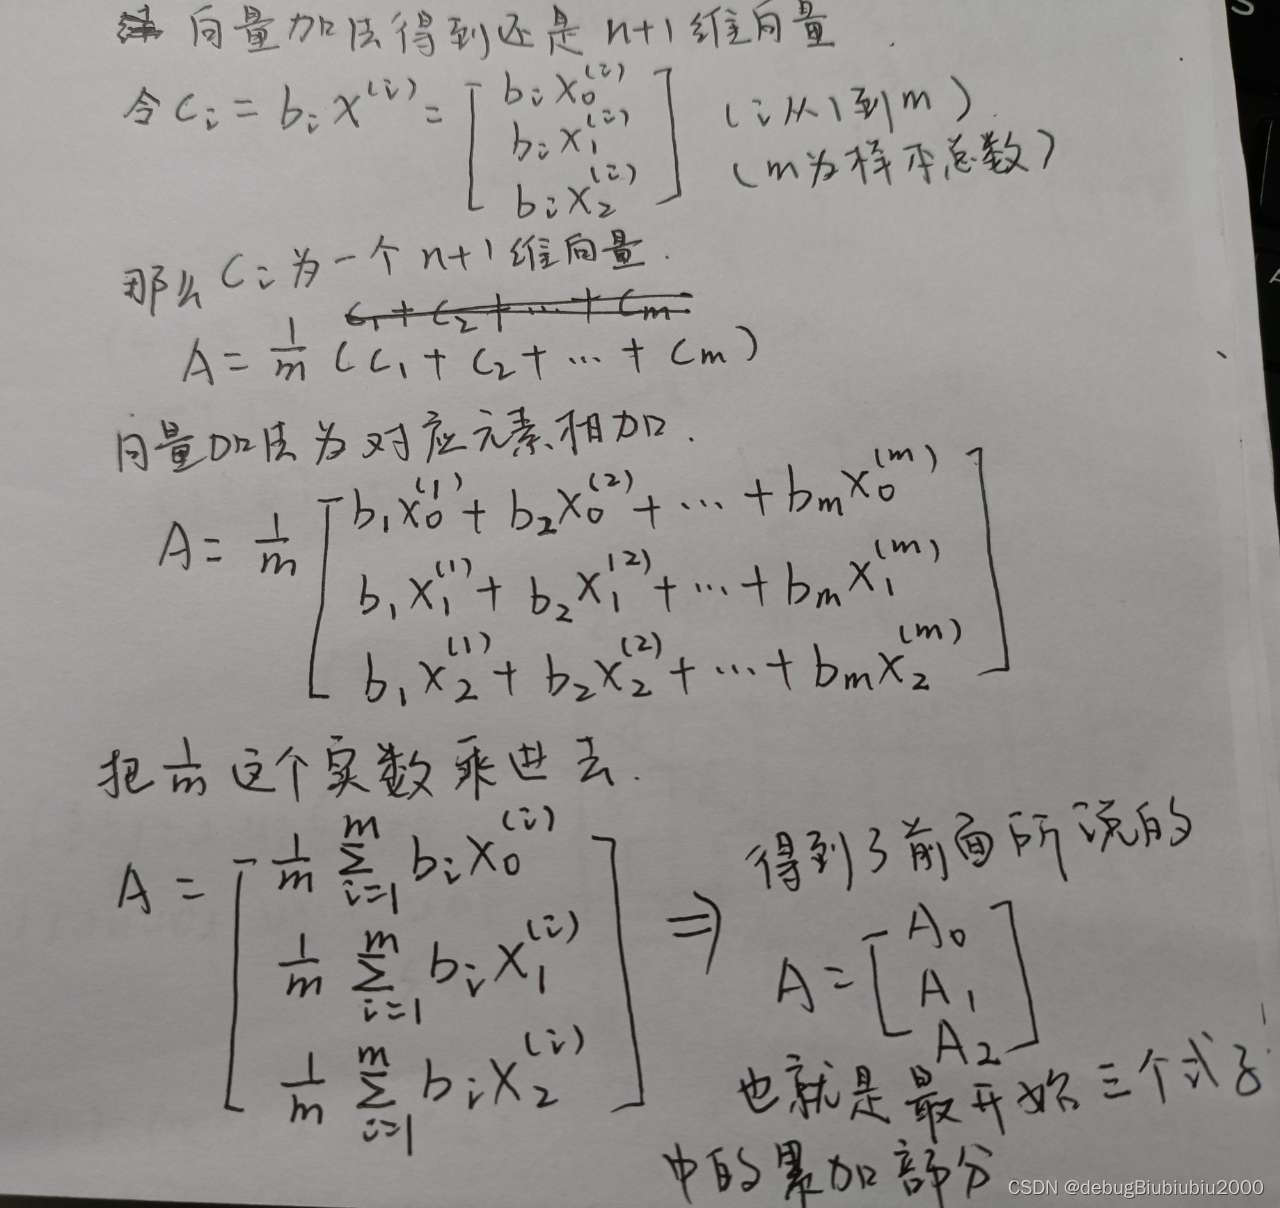 向量加法得到还是 n+1 维向量.
令 C_i = b_i x^{(i)} = [ b_i x_0^{(i)} (i 从 1 到 m)
b_i x_1^{(i)} (m 为样本总数)
b_i x_2^{(i)} ]
那么 C_i 为一个 n+1 维向量.
C_1 + C_2 + … + C_m
A = 1/m (C_1 + C_2 + … + C_m)
向量加法为对应元素相加.
A = 1/m [ b_1 x_0^{(1)} + b_2 x_0^{(2)} + … + b_m x_0^{(m)}
b_1 x_1^{(1)} + b_2 x_1^{(2)} + … + b_m x_1^{(m)}
b_1 x_2^{(1)} + b_2 x_2^{(2)} + … + b_m x_2^{(m)} ]
把 1/m 这个实数乘进去.
A = [ 1/m ∑_{i=1}^{m} b_i x_0^{(i)}
1/m ∑_{i=1}^{m} b_i x_1^{(i)}
1/m ∑_{i=1}^{m} b_i x_2^{(i)} ]
⇒ 得到了前面所说的
A = [ A_0
A_1
A_2 ]
也就是最开始三个式子
中的累加部分
CSDN @debugBiubiubiu2000